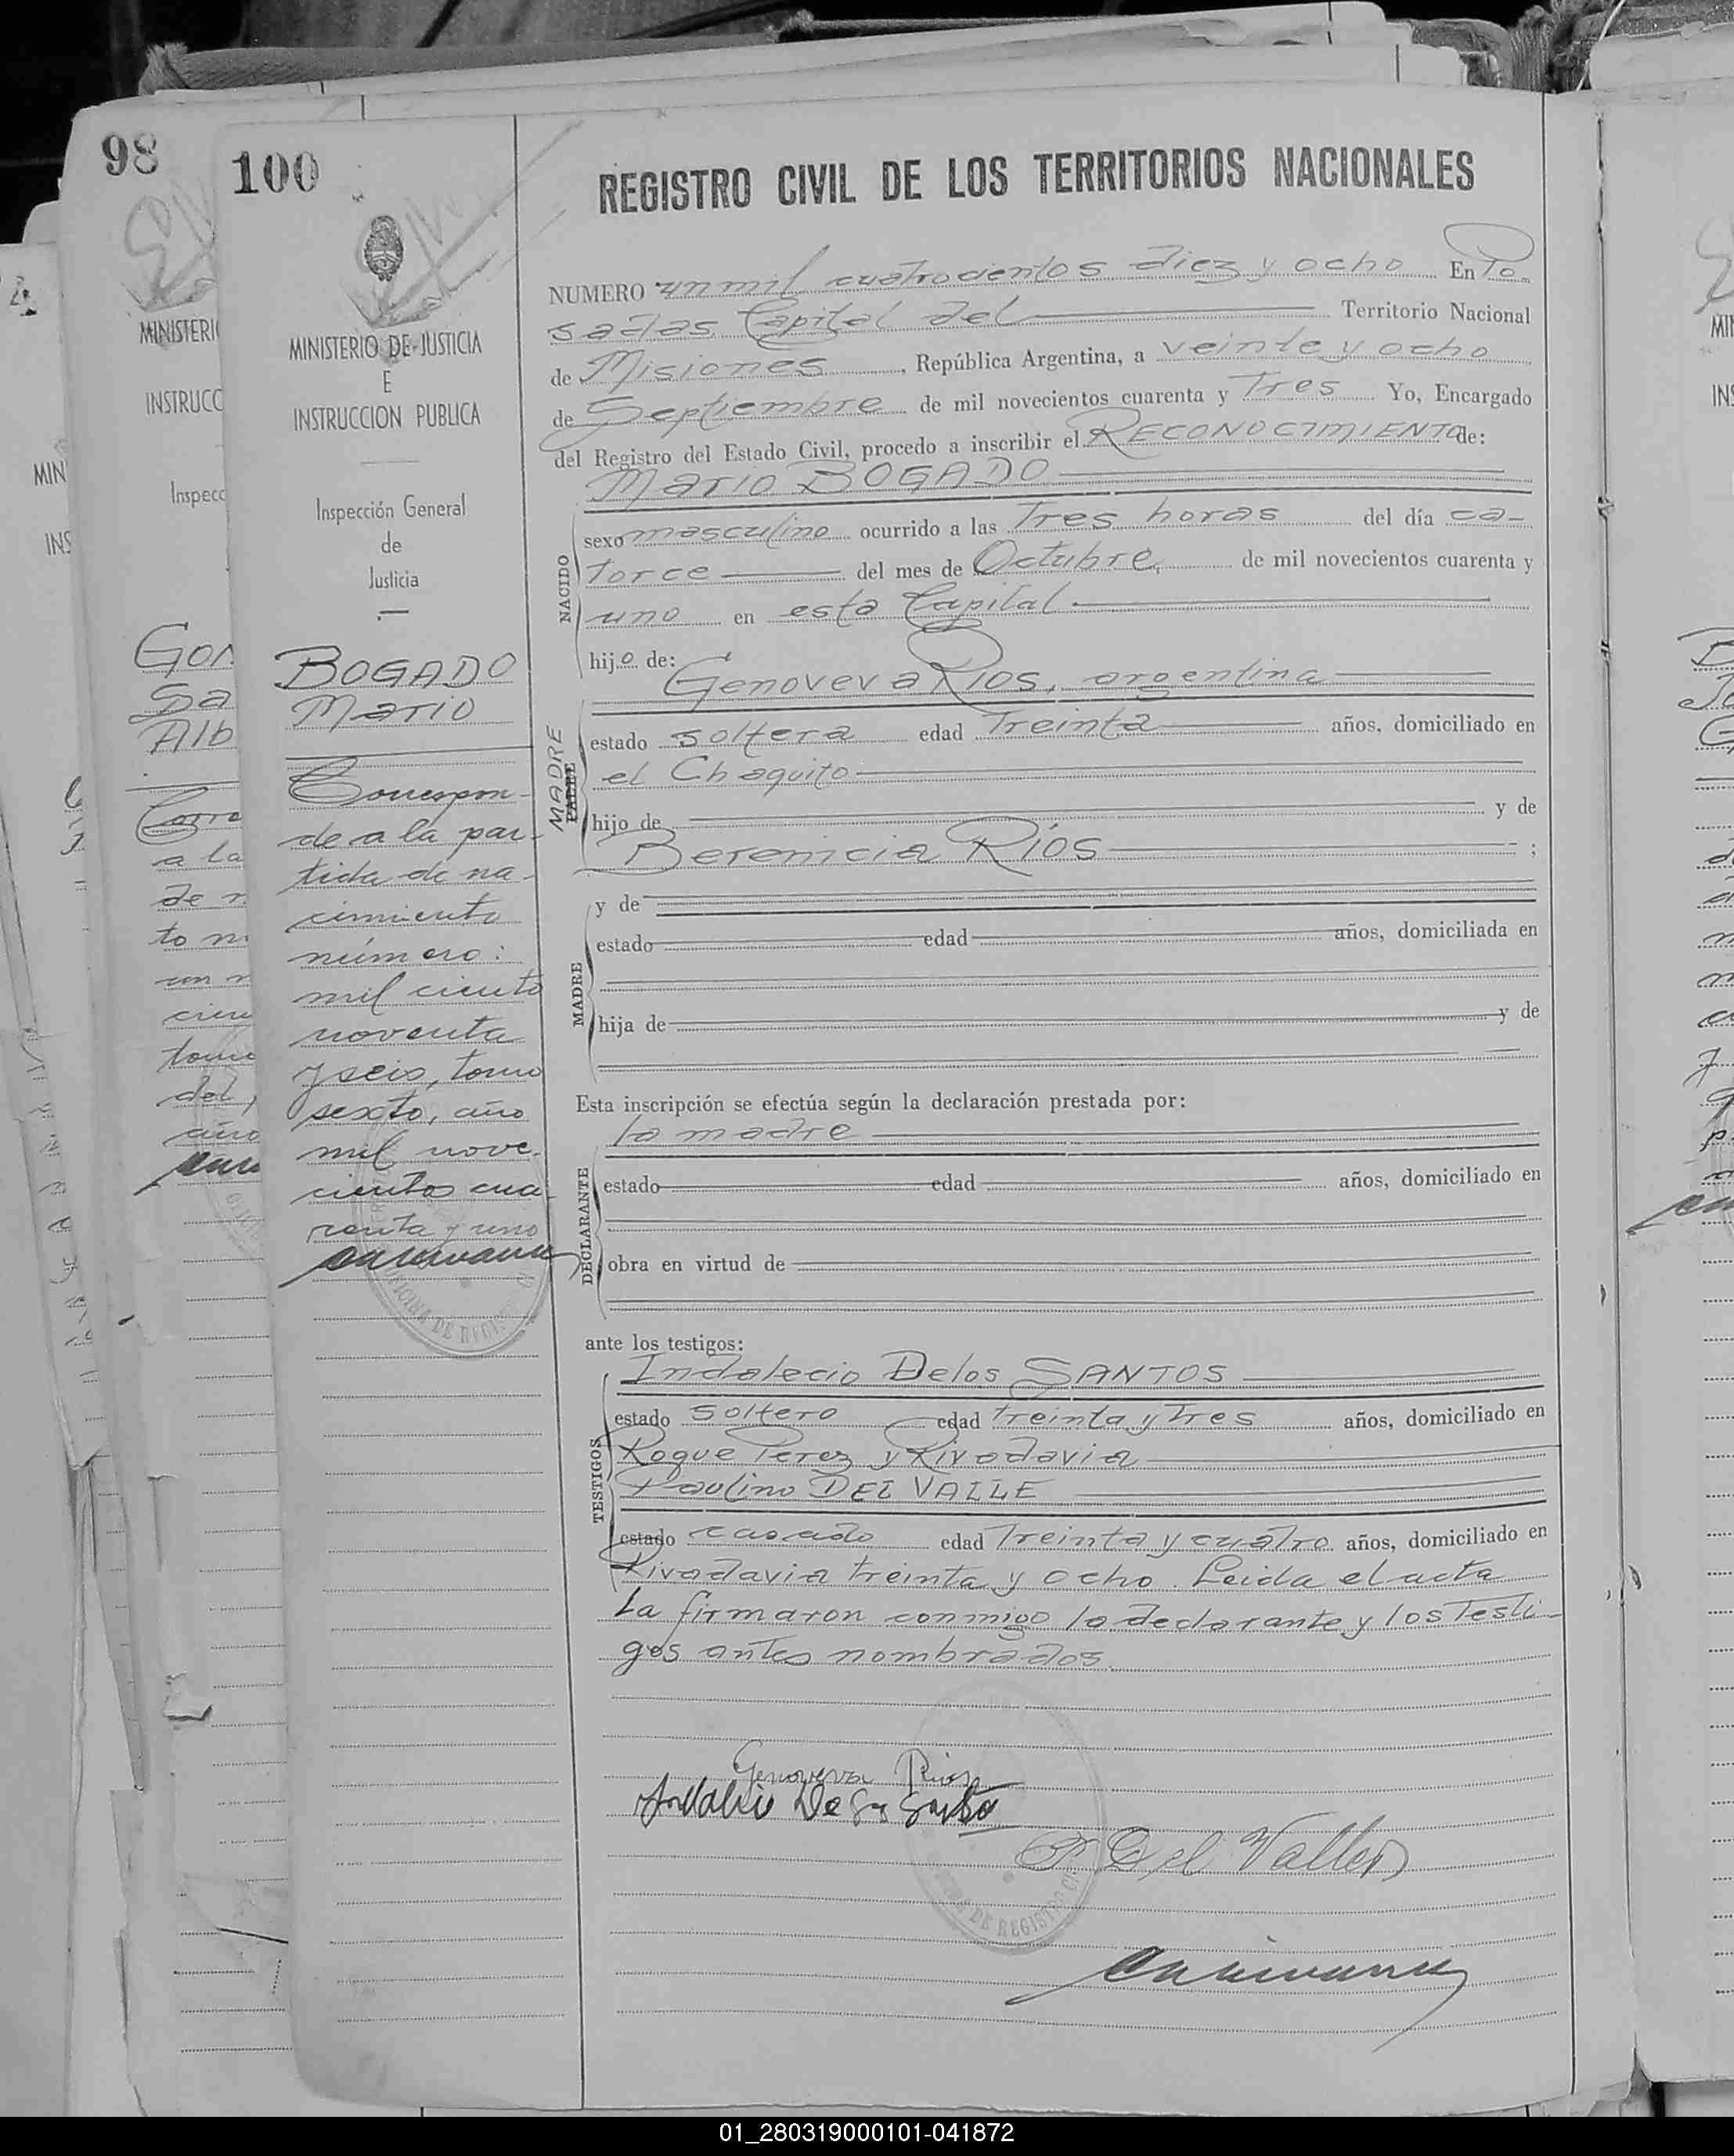 98
100
REGISTRO CIVIL DE LOS TERRITORIOS NACIONALES
MINISTERIO DE JUSTICIA
E
INSTRUCCION PUBLICA
Inspección General
de
Justicia
BOGADO
Mario
Correspon-
de a la par-
tida de na-
cimiento
número:
mil ciento
noventa
y seis, tomo
sexto, año
mil nove-
cientos cua-
renta y uno
NUMERO un mil cuatrocientos diez y ocho En Po-
sadas Capital del Territorio Nacional
de Misiones, República Argentina, a veinte y ocho
de Septiembre de mil novecientos cuarenta y Tres Yo, Encargado
del Registro del Estado Civil, procedo a inscribir el RECONOCIMIENTO de:
Mario BOGADO
NACIDO
sexo masculino ocurrido a las Tres horas del día ca-
torce del mes de Octubre, de mil novecientos cuarenta y
uno en esta Capital
hijo de:
Genoveva Rios, argentina
MADRE
PADRE
estado soltera edad Treinta años, domiciliado en
el Chaquito
hijo de y de
Berenicia Ríos ;
y de
MADRE
estado edad años, domiciliada en
hija de y de
Esta inscripción se efectúa según la declaración prestada por:
la madre
DECLARANTE
estado edad años, domiciliado en
obra en virtud de
ante los testigos:
TESTIGOS
Indalecio Delos SANTOS
estado soltero edad treinta y tres años, domiciliado en
Roque Perez y Rivadavia
Paulino DEL VALLE
estado casado edad Treinta y cuatro años, domiciliado en
Rivadavia treinta y ocho. Leida el acta
La firmaron conmigo la declarante y los Testi-
gos antes nombrados.
Genoveva Rios
P. Del Valle
DE REGISTRO
01_280319000101-041872